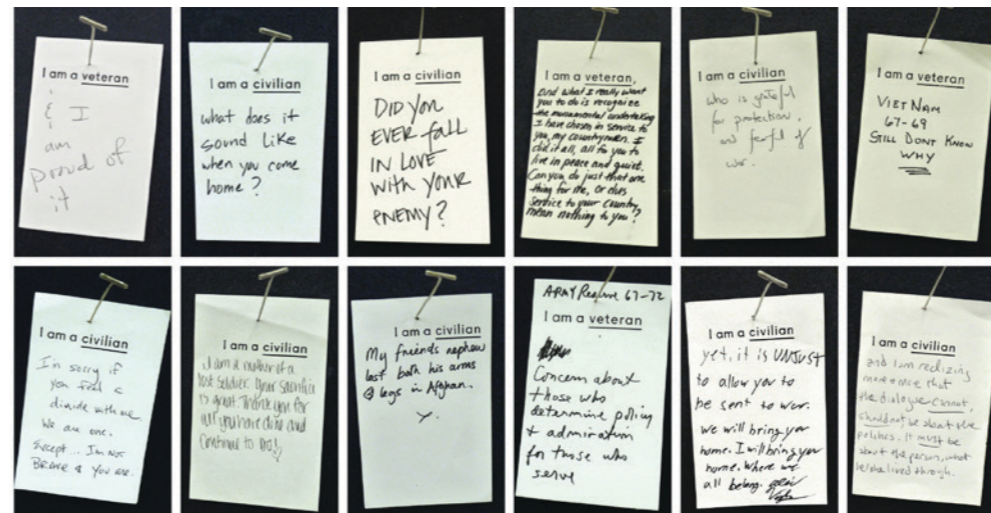 I am a veteran
& I
am
proud of
it
I am a civilian
what does it
sound like
when you come
home?
I am a civilian
DID you
EVER fall
IN LOVE
WITH YOUR
ENEMY?
I am a veteran,
And what I really want
you to do is recognize
the monumental undertaking
I have chosen in service to
you, my countrymen. I
did it all, all for you to
live in peace and quiet.
Can you do just that one
thing for me, or does
service to your country
mean nothing to you!?
I am a civilian
who is grateful
for protection,
and fearful of
war.
I am a veteran
VIET NAM
67-69
STILL DONT KNOW
WHY
I am a civilian
I'm sorry if
you feel a
divide with me.
We are one.
Except... I'm not
BRAVE & you are.
I am a civilian
I am a mother of a
lost soldier. Your sacrifice
is great. Thank you for
all you have done and
continue to do!
I am a civilian
My friends nephew
lost both his arms
& legs in Afghan.
ARMY Reserve 67-72
I am a veteran
Concern about
those who
determine policy
+ admiration
for those who
serve
I am a civilian
yet, it is UNJUST
to allow you to
be sent to war.
We will bring you
home. I will bring you
home. Where we
all belong.
I am a civilian
and I am realizing
more & more that
the dialogue cannot,
should not, be about the
politics. It must be
about the person, what
he/she lived through.